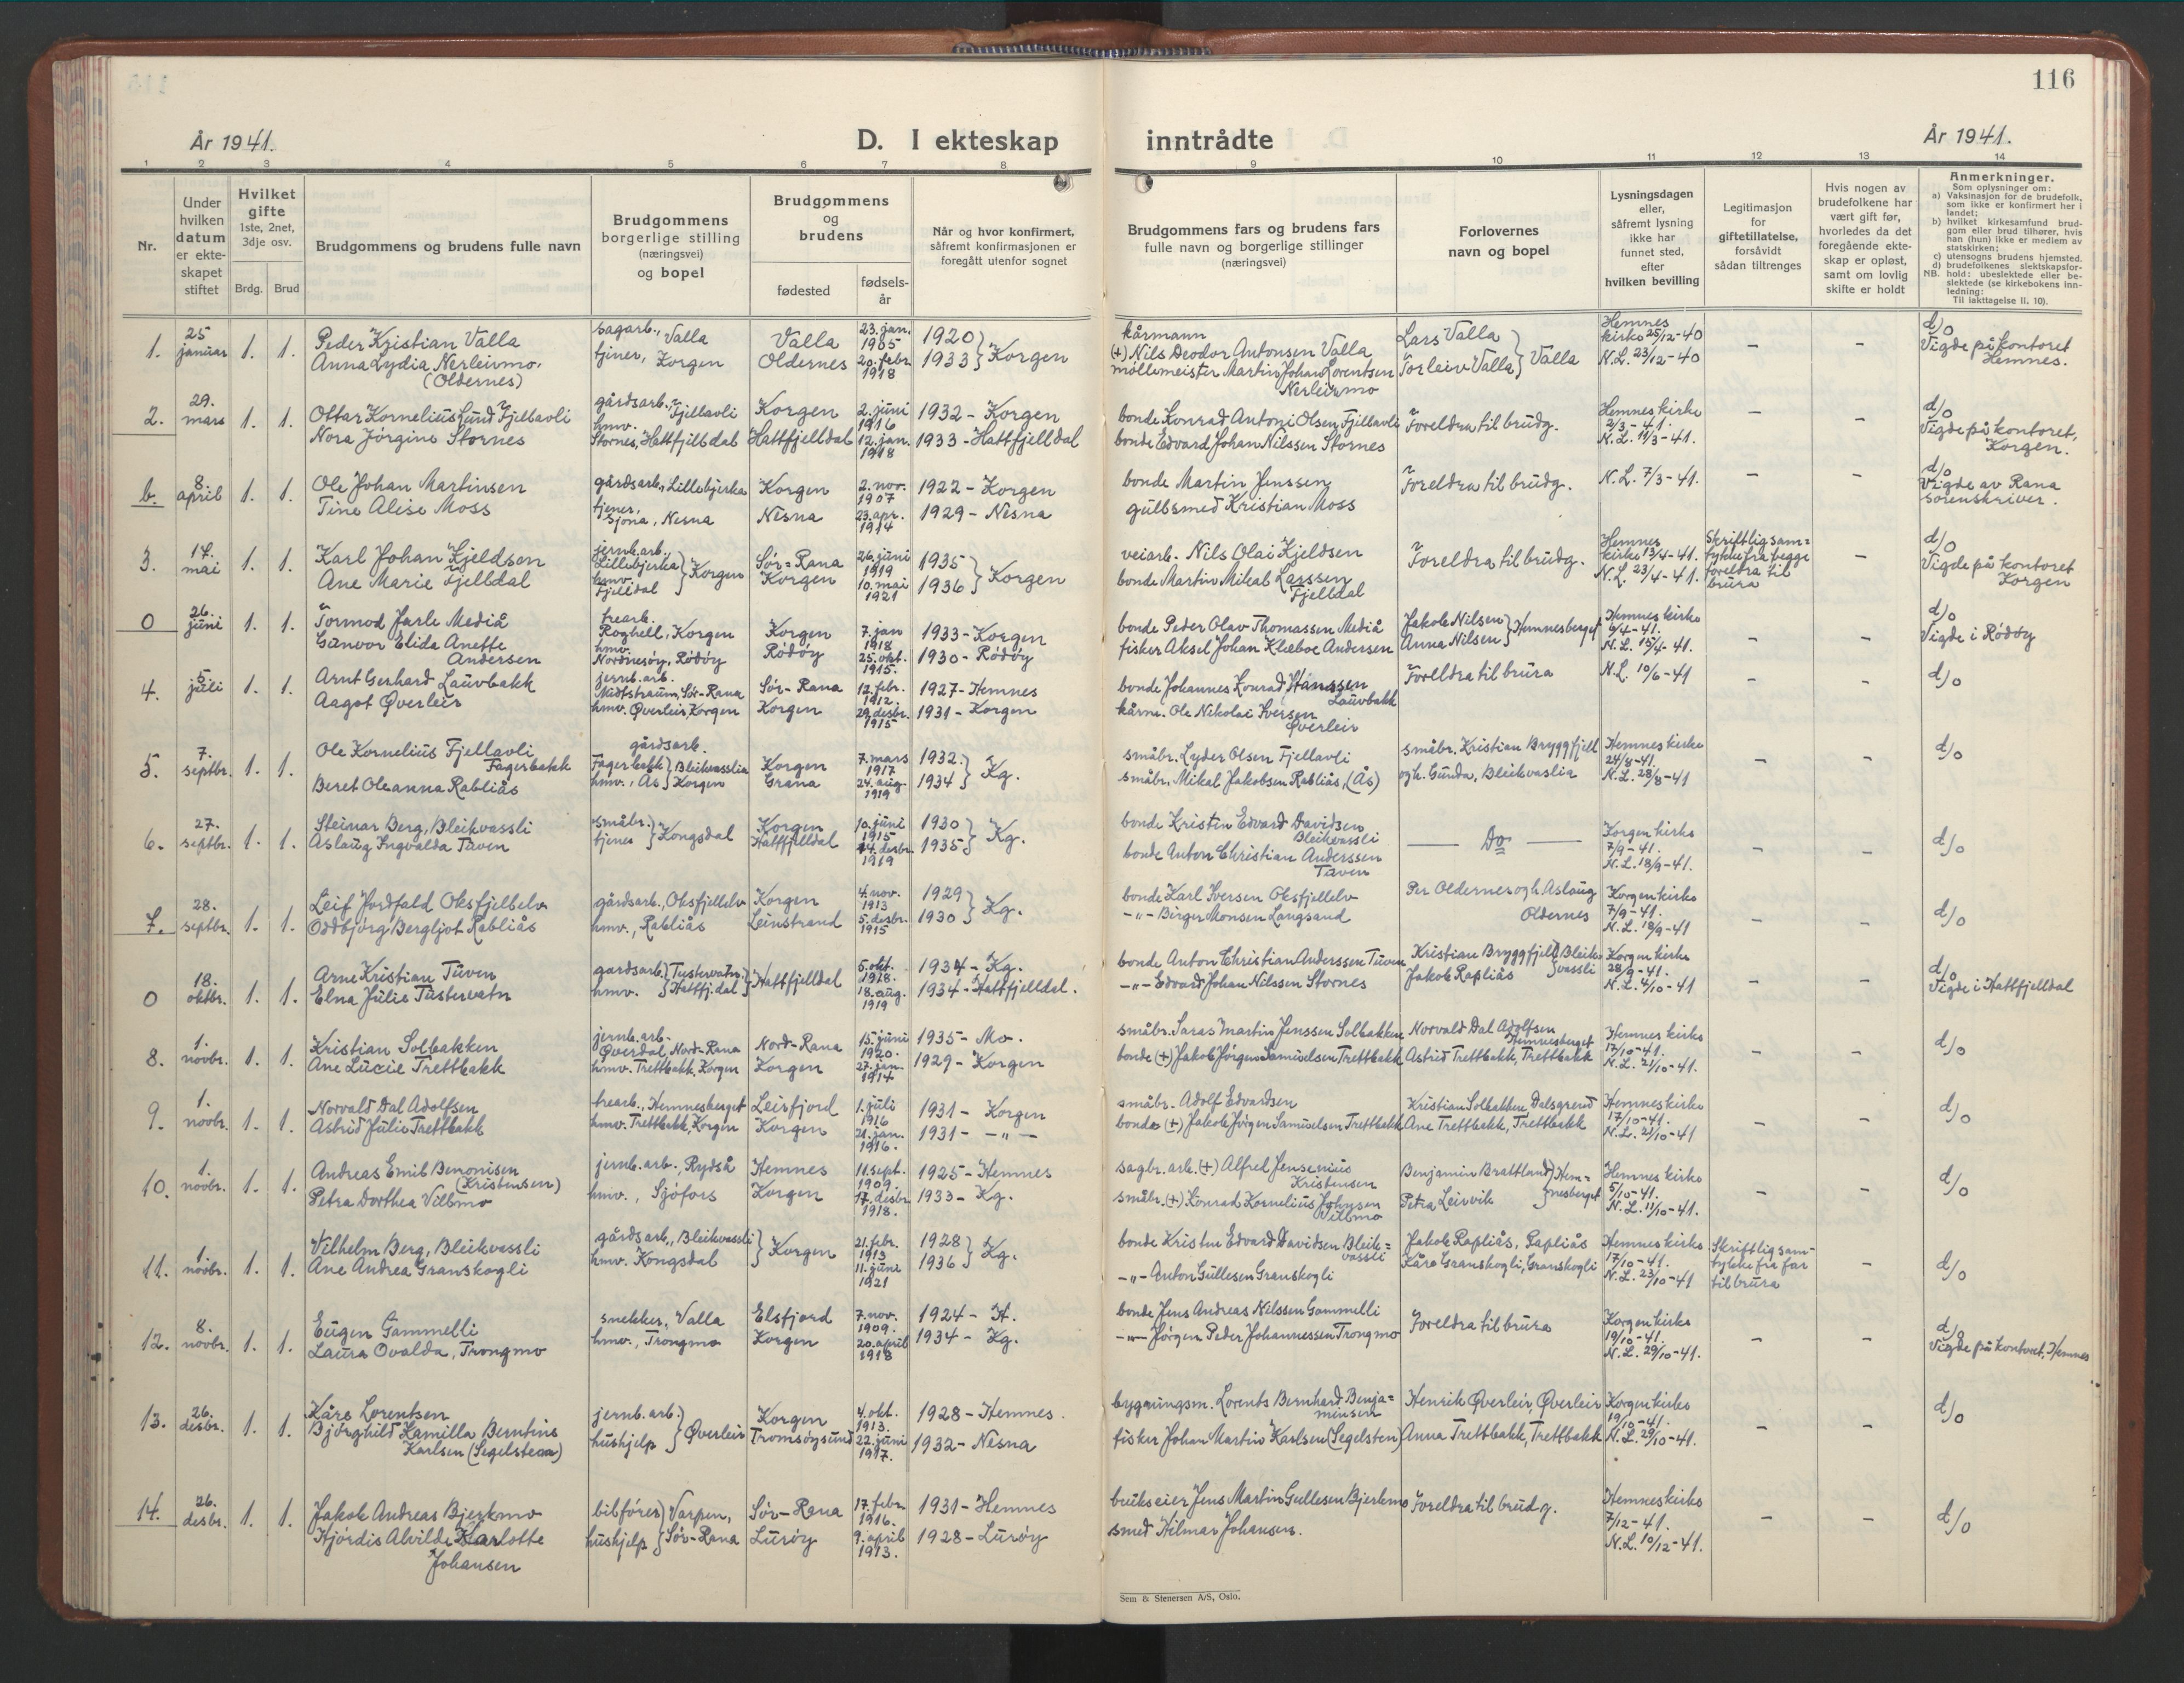 116
År 1941.
D. I ekteskap inntrådte
År 1941.
1 2 3 4 5 6 7 8 9 10 11 12 13 14
Nr.
Under hvilken datum er ekteskapet stiftet
Hvilket gifte 1ste, 2net, 3dje osv.
Brdg. Brud
Brudgommens og brudens fulle navn
Brudgommens borgerlige stilling (næringsvei) og bopel
Brudgommens og brudens
fødested
fødselsår
Når og hvor konfirmert, såfremt konfirmasjonen er foregått utenfor sognet
Brudgommens fars og brudens fars fulle navn og borgerlige stillinger (næringsvei)
Forlovernes navn og bopel
Lysningsdagen eller, såfremt lysning ikke har funnet sted, efter hvilken bevilling
Legitimasjon for giftetillatelse, forsåvidt sådan tiltrenges
Hvis nogen av brudefolkene har vært gift før, hvorledes da det foregående ekteskap er opløst, samt om lovlig skifte er holdt
Anmerkninger.
Som oplysninger om:
a) Vaksinasjon for de brudefolk, som ikke er konfirmert her i landet;
b) hvilket kirkesamfund brudgom eller brud tilhører, hvis han (hun) ikke er medlem av statskirken;
c) utensogns brudens hjemsted.
d) brudefolkenes slektskapsforhold: ubeslektede eller beslektede (se kirkebokens innledning:
NB. Til iakttagelse II. 10).
1. 25 januar 1. 1. Peder Kristian Valla sagarb., Valla Valla 23. jan. 1905 1920 } Korgen kårmann (+) Nils Deodor Antonsen Valla Lars Valla } Valla Hemnes kirke 25/12-40 – – d/o Vigde på kontoret Hemnes.
Anna Lydia Nerleirmo. (Oldernes) tjener, Korgen Oldernes 20. febr. 1918 1933 møllemeister Martin Johan Lorentsen Nerleirmo Torleiv Valla N.L. 23/12-40
2. 29. mars 1. 1. Ottar Kornelius Lund Fjellavli gårdsarb., Fjellavli Korgen 2. juni 1916 1932 - Korgen bonde Konrad Antoni Olsen Fjellavli Foreldra til brudg. Hemnes kirke 2/3-41. – – d/o Vigde på kontoret, Korgen.
Nora Jørgine Stornes hmv. Stornes, Hattfjelldal Hattfjelldal 12. jan. 1918 1933 - Hattfjelldal bonde Edvard Johan Nilssen Stornes N.L. 11/3-41.
b. 8. april 1. 1. Ole Johan Martinsen gårdsarb., Lillebjerka Korgen 2. nov. 1907 1922 - Korgen bonde Martin Jenssen Foreldra til brudg. N.L. 7/3-41. – – d/o Vigde av Rana sorenskriver.
Tine Alise Moss tjener, Sjona, Nesna Nesna 23. apr. 1914 1929 - Nesna gullsmed Kristian Moss
3. 14. mai 1. 1. Karl Johan Kjeldsen jernb.arb. Lillebjerka } Korgen Sør-Rana 26. juni 1919 1935 } Korgen veiarb. Nils Olai Kjeldsen Foreldra til brudg. Hemnes kirke 13/4-41. Skriftlig samtykke fra begge foreldra til brura – d/o Vigde på kontoret Korgen
Ane Marie Fjelldal hmv. Fjelldal Korgen 10. mai 1921 1936 bonde Martin Mikal Larssen Fjelldal N.L. 23/4-41.
0 26. juni 1. 1. Tormod Jarle Mediå trearb. Korgen Korgen 7. jan 1918 1933 - Korgen bonde Peder Olav Thomassen Mediå Jakob Nilsen } Hemnesberget Hemnes kirke 6/4-41. – – d/o Vigde i Rødøy
Gunvor Elida Anette Andersen hmv. Nordnesøy, Rødøy Rødøy 25. okt. 1915. 1930 - Rødøy fisker Aksel Johan Klæboe Andersen Anna Nilsen N.L. 15/4-41.
4. 5. juli 1. 1. Arnt Gerhard Lauvbakk jernb.arb. Sør-Rana Sør-Rana 12. febr. 1912. 1927 - Hemnes bonde Johannes Konrad Hanssen Lauvbakk Foreldra til brura N.L. 10/6-41 – – d/o
Aagot Øverleir hmv. Øverleir, Korgen Korgen 29. desbr. 1915 1931 - Korgen kårm. Ole Nikolai Iversen Øverleir
5. 7. septbr. 1. 1. Ole Kornelius Fjellavli Fagerbakk gårdsarb. Fagerbakk } Bleikvasslia Korgen 7. mars 1917 1932. } Kg. småbr. Lyder Olsen Fjellavli småbr. Kristian Bryggfjell Hemnes kirke 24/8-41. – – d/o
Beret Oleanna Rabliås hmv., Ås } Korgen Grana 24. aug. 1919 1934 småbr. Mikal Jakobsen Rabliås, (Ås) og h. Gunda, Bleikvaslia N.L. 28/8-41
6. 27. septbr. 1. 1. Steinar Berg, Bleikvassli småbr. } Kongsdal Korgen 10. juni 1915 1930 } Kg. bonde Kristen Edvard Davidsen Bleikvassli — Do — Korgen kirke 7/9-41. – – d/o
Aslaug Ingvalda Tuven tjener Hattfjelldal 14. desbr. 1919 1935 bonde Anton Christian Anderssen Tuven N.L. 18/9-41.
7. 28. septbr. 1. 1. Leif Jordfald Oksfjellelv gårdsarb., Oksfjellelv Korgen 4. nov. 1913 1929 } Kg. bonde Karl Iversen Oksfjellelv Per Oldernes og h. Aslaug Oldernes Korgen kirke 7/9-41. – – d/o
Oddbjørg Bergljot Rabliås hmv., Rabliås Leinstrand 5. desbr. 1915 1930 -"- Birger Monsen Langsand N.L. 18/9-41
0 18. oktbr. 1. 1. Arne Kristian Tuven gardsarb. } Tustervatn. } Hattfjelldal 5. okt. 1918. 1934 - Kg. bonde Anton Christian Anderssen Tuven Kristian Bryggfjell } Bleikvassli Korgen kirke 28/9-41. – – d/o Vigde i Hattfjelldal
Elna Julie Tustervatn hmv. } Hattfj.dal 18. aug. 1919 1934 - Hattfjelldal. -"- Edvard Johan Nilssen Stornes Jakob Rapliås N.L. 4/10-41
8. 1. novbr. 1. 1. Kristian Solbakken jernb.arb. Øverdal, Nord-Rana Nord-Rana 15. juni 1920. 1935 - Mo. småbr. Martin Jenssen Solbakken Norvald Dal Adolfsen Hemnesberget Hemnes kirke 17/10-41. – – d/o
Ane Lucie Trettbakk hmv. Trettbakk, Korgen Korgen 27. jan. 1914 1929 - Korgen bonde (+) Jakob Jørgen Samuelsen Trettbakk Astrid Trettbakk, Trettbakk N.L. 21/10-41.
9. 1. novbr. 1. 1. Norvald Dal Adolfsen trearb., Hemnesberget Leirfjord 1. juli 1916 1931 - Korgen småbr. Adolf Edvardsen Kristian Solbakken, Dalsgrend Hemnes kirke 17/10-41. – – d/o
Astrid Julie Trettbakk hmv. Trettbakk, Korgen Korgen 21. jan. 1916. 1931 - -"- bonde (+) Jakob Jørgen Samuelsen Trettbakk Ane Trettbakk, Trettbakk N.L. 21/10-41
10. 1. novbr. 1. 1. Andreas Emil Benonisen (Kristensen) jernb.arb., Rydså Hemnes 11. sept. 1909. 1925 - Hemnes sagbr. arb. (+) Alfred Jensenius Kristensen Benjamin Brattland } Hemnesberget Hemnes kirke 5/10-41. – – d/o
Petra Dorthea Villmo hmv., Sjøfors Korgen 17. desbr. 1918. 1933 - Kg. småbr. (+) Konrad Kornelius Johnsen Villmo Petra Leirvik N.L. 11/10-41.
11. 1. novbr. 1. 1. Vilhelm Berg, Bleikvassli gårdsarb., Bleikvassli } Korgen 21. febr. 1913 1928 } Kg. bonde Kristen Edvard Davidsen Bleikvassli Jakob Rapliås, Rapliås Hemnes kirke 17/10-41. Skriftlig samtykke fra far til brura – d/o
Ane Andrea Granskogli hmv. Kongsdal 11. juni 1921 1936 -"- Anton Gullesen Granskogli Kåre Granskogli, Granskogli N.L. 23/10-41
12. 8. novbr. 1. 1. Eugen Gammelli snekker, Valla Elsfjord 7. nov. 1909. 1924 - H. bonde Jens Andreas Nilssen Gammelli Foreldra til brura Korgen kirke 19/10-41. – – d/o Vigde på kontoret, Hemnes
Laura Ovalda, Trongmo hmv., Trongmo Korgen 20. april 1918 1934 - Kg. -"- Jørgen Peder Johannessen Trongmo N.L. 29/10-41.
13. 26. desbr. 1. 1. Kåre Lorentsen jernb.arb. } Øverleir Korgen 4. okt. 1913. 1928 - Hemnes. bygningsm. Lorents Bernhard Benjaminsen Henrik Øverleir, Øverleir Korgen kirke 19/10-41. – – d/o
Bjørghild Kamilla Berntine Karlsen (Segelsten) hushjelp Tromsøysund 22. juni 1917. 1932 - Nesna fisker Johan Martin Karlsen (Segelsten) Anna Trettbakk, Trettbakk N.L. 29/10-41.
14. 26. desbr. 1. 1. Jakob Andreas Bjerkmo bilfører } Varpen, Sør-Rana 17. febr. 1916. 1931 - Hemnes brukseier Jens Martin Gullesen Bjerkmo Foreldra til brudg. Hemnes kirke 7/12-41. – – d/o
Hjørdis Alvilde Karlotte Johansen hushjelp } Sør-Rana Lurøy 9. april 1913. 1928 - Lurøy smed Hilmar Johansen. N.L. 10/12-41.
Sem & Stenersen A/S, Oslo.